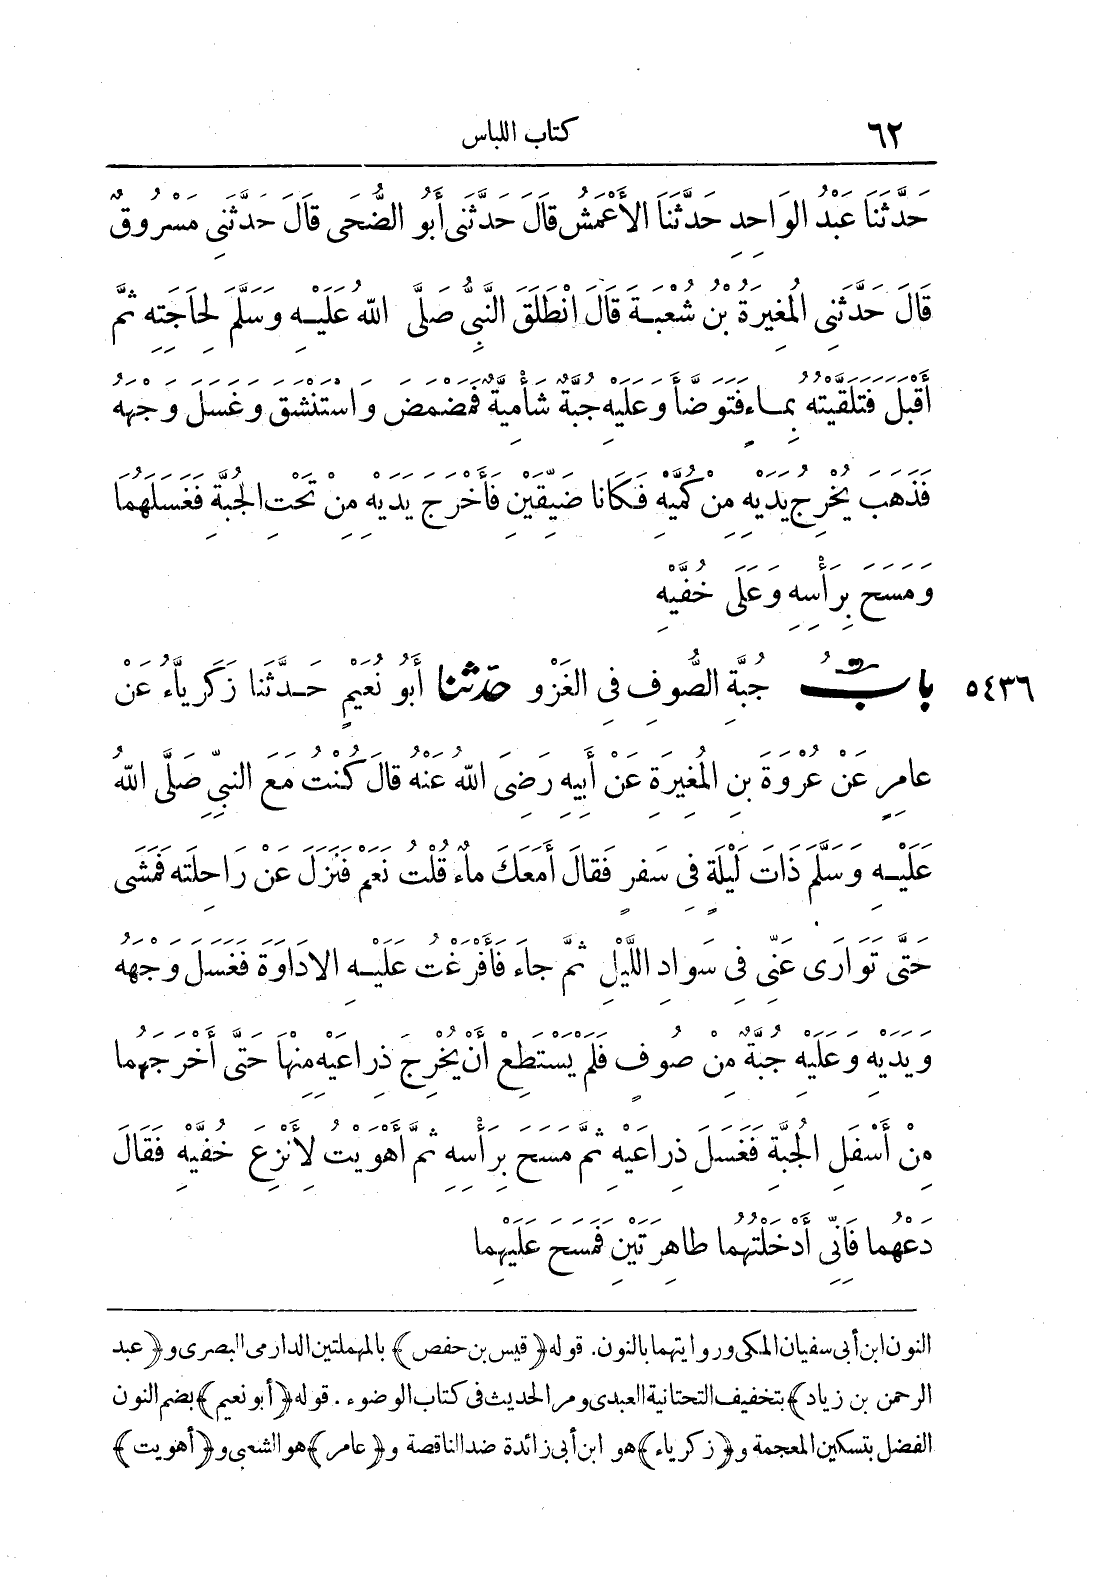 ٦٢ كتاب اللباس
حَدَّثَنَا عَبْدُ الوَاحِدِ حَدَّثَنَا الأَعْمَشُ قَالَ حَدَّثَنِى أَبُو الضُّحَى قَالَ حَدَّثَنِى مَسْرُوقٌ
قَالَ حَدَّثَنِى الْمُغِيرَةُ بْنُ شُعْبَةَ قَالَ انْطَلَقَ النَّبِىُّ صَلَّى اللهُ عَلَيْهِ وَسَلَّمَ لِحَاجَتِهِ ثُمَّ
أَقْبَلَ فَتَلَقَّيْتُهُ بِمَاءٍ فَتَوَضَّأَ وَعَلَيْهِ جُبَّةٌ شَأْمِيَّةٌ فَمَضْمَضَ وَاسْتَنْشَقَ وَغَسَلَ وَجْهَهُ
فَذَهَبَ يُخْرِجُ يَدَيْهِ مِنْ كُمَّيْهِ فَكَانَا ضَيِّقَيْنِ فَأَخْرَجَ يَدَيْهِ مِنْ تَحْتِ الجُبَّةِ فَغَسَلَهُمَا
وَمَسَحَ بِرَأْسِهِ وَعَلَى خُفَّيْهِ
٥٤٣٦ بابُ جُبَّةِ الصُّوفِ فِى الغَزْوِ حدثنا أَبُو نُعَيْمٍ حَدَّثَنَا زَكَرِيَّاءُ عَنْ
عامِرٍ عَنْ عُرْوَةَ بنِ الْمُغِيرَةِ عَنْ أَبِيهِ رَضِىَ اللهُ عَنْهُ قالَ كُنْتُ مَعَ النبِيِّ صَلَّى اللهُ
عَلَيْهِ وَسَلَّمَ ذَاتَ لَيْلَةٍ فِى سَفَرٍ فَقالَ أَمَعَكَ ماءٌ قُلْتُ نَعَمْ فَنَزَلَ عَنْ رَاحِلَتِهِ فَمَشَى
حَتَّى تَوَارَى عَنِّى فِى سَوادِ اللَّيْلِ ثُمَّ جاءَ فَأَفْرَغْتُ عَلَيْهِ الاِدَاوَةَ فَغَسَلَ وَجْهَهُ
وَيَدَيْهِ وَعَلَيْهِ جُبَّةٌ مِنْ صُوفٍ فَلَمْ يَسْتَطِعْ أَنْ يُخْرِجَ ذِرَاعَيْهِ مِنْهَا حَتَّى أَخْرَجَهُما
مِنْ أَسْفَلِ الجُبَّةِ فَغَسَلَ ذِرَاعَيْهِ ثُمَّ مَسَحَ بِرَأْسِهِ ثُمَّ أَهْوَيْتُ لِأَنْزِعَ خُفَّيْهِ فَقَالَ
دَعْهُما فَانِّى أَدْخَلْتُهُما طاهِرَتَيْنِ فَمَسَحَ عَلَيْهِما
النون ابن أبى سفيان المكى وروايتهما بالنون. قوله ﴿قيس بن حفص﴾ بالمهملتين الدارمى البصرى و﴿عبد
الرحمن بن زياد﴾ بتخفيف التحتانية العبدى ومر الحديث فى كتاب الوضوء . قوله ﴿أبو نعيم﴾ بضم النون
الفضل بتسكين المعجمة و﴿زكرياء﴾ هو ابن أبى زائدة ضد الناقصة و﴿عامر﴾ هو الشعبى و﴿أهويت﴾